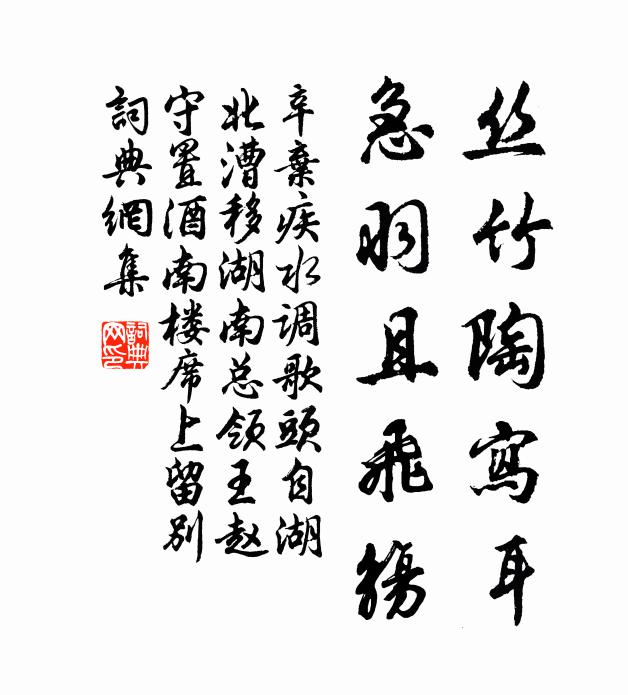 丝竹陶寫耳
急羽且飛觴
辛棄疾水调歌頭自湖
北漕移湖南总领王赵
守置酒南楼席上留别
詞典網集
詞典網印